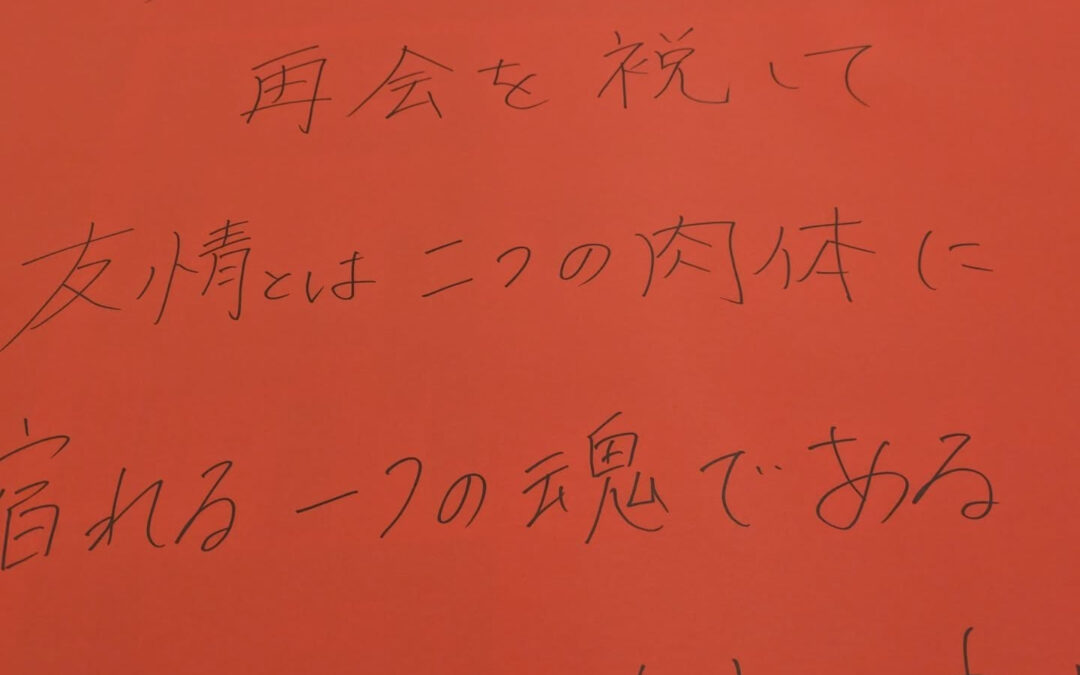 再会を祝して
友情とは二つの肉体に
宿れる一つの魂である